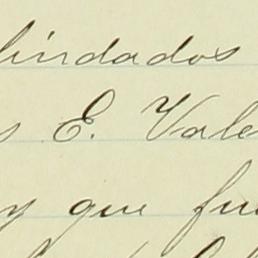 lindados
s E. Vale
y que fu